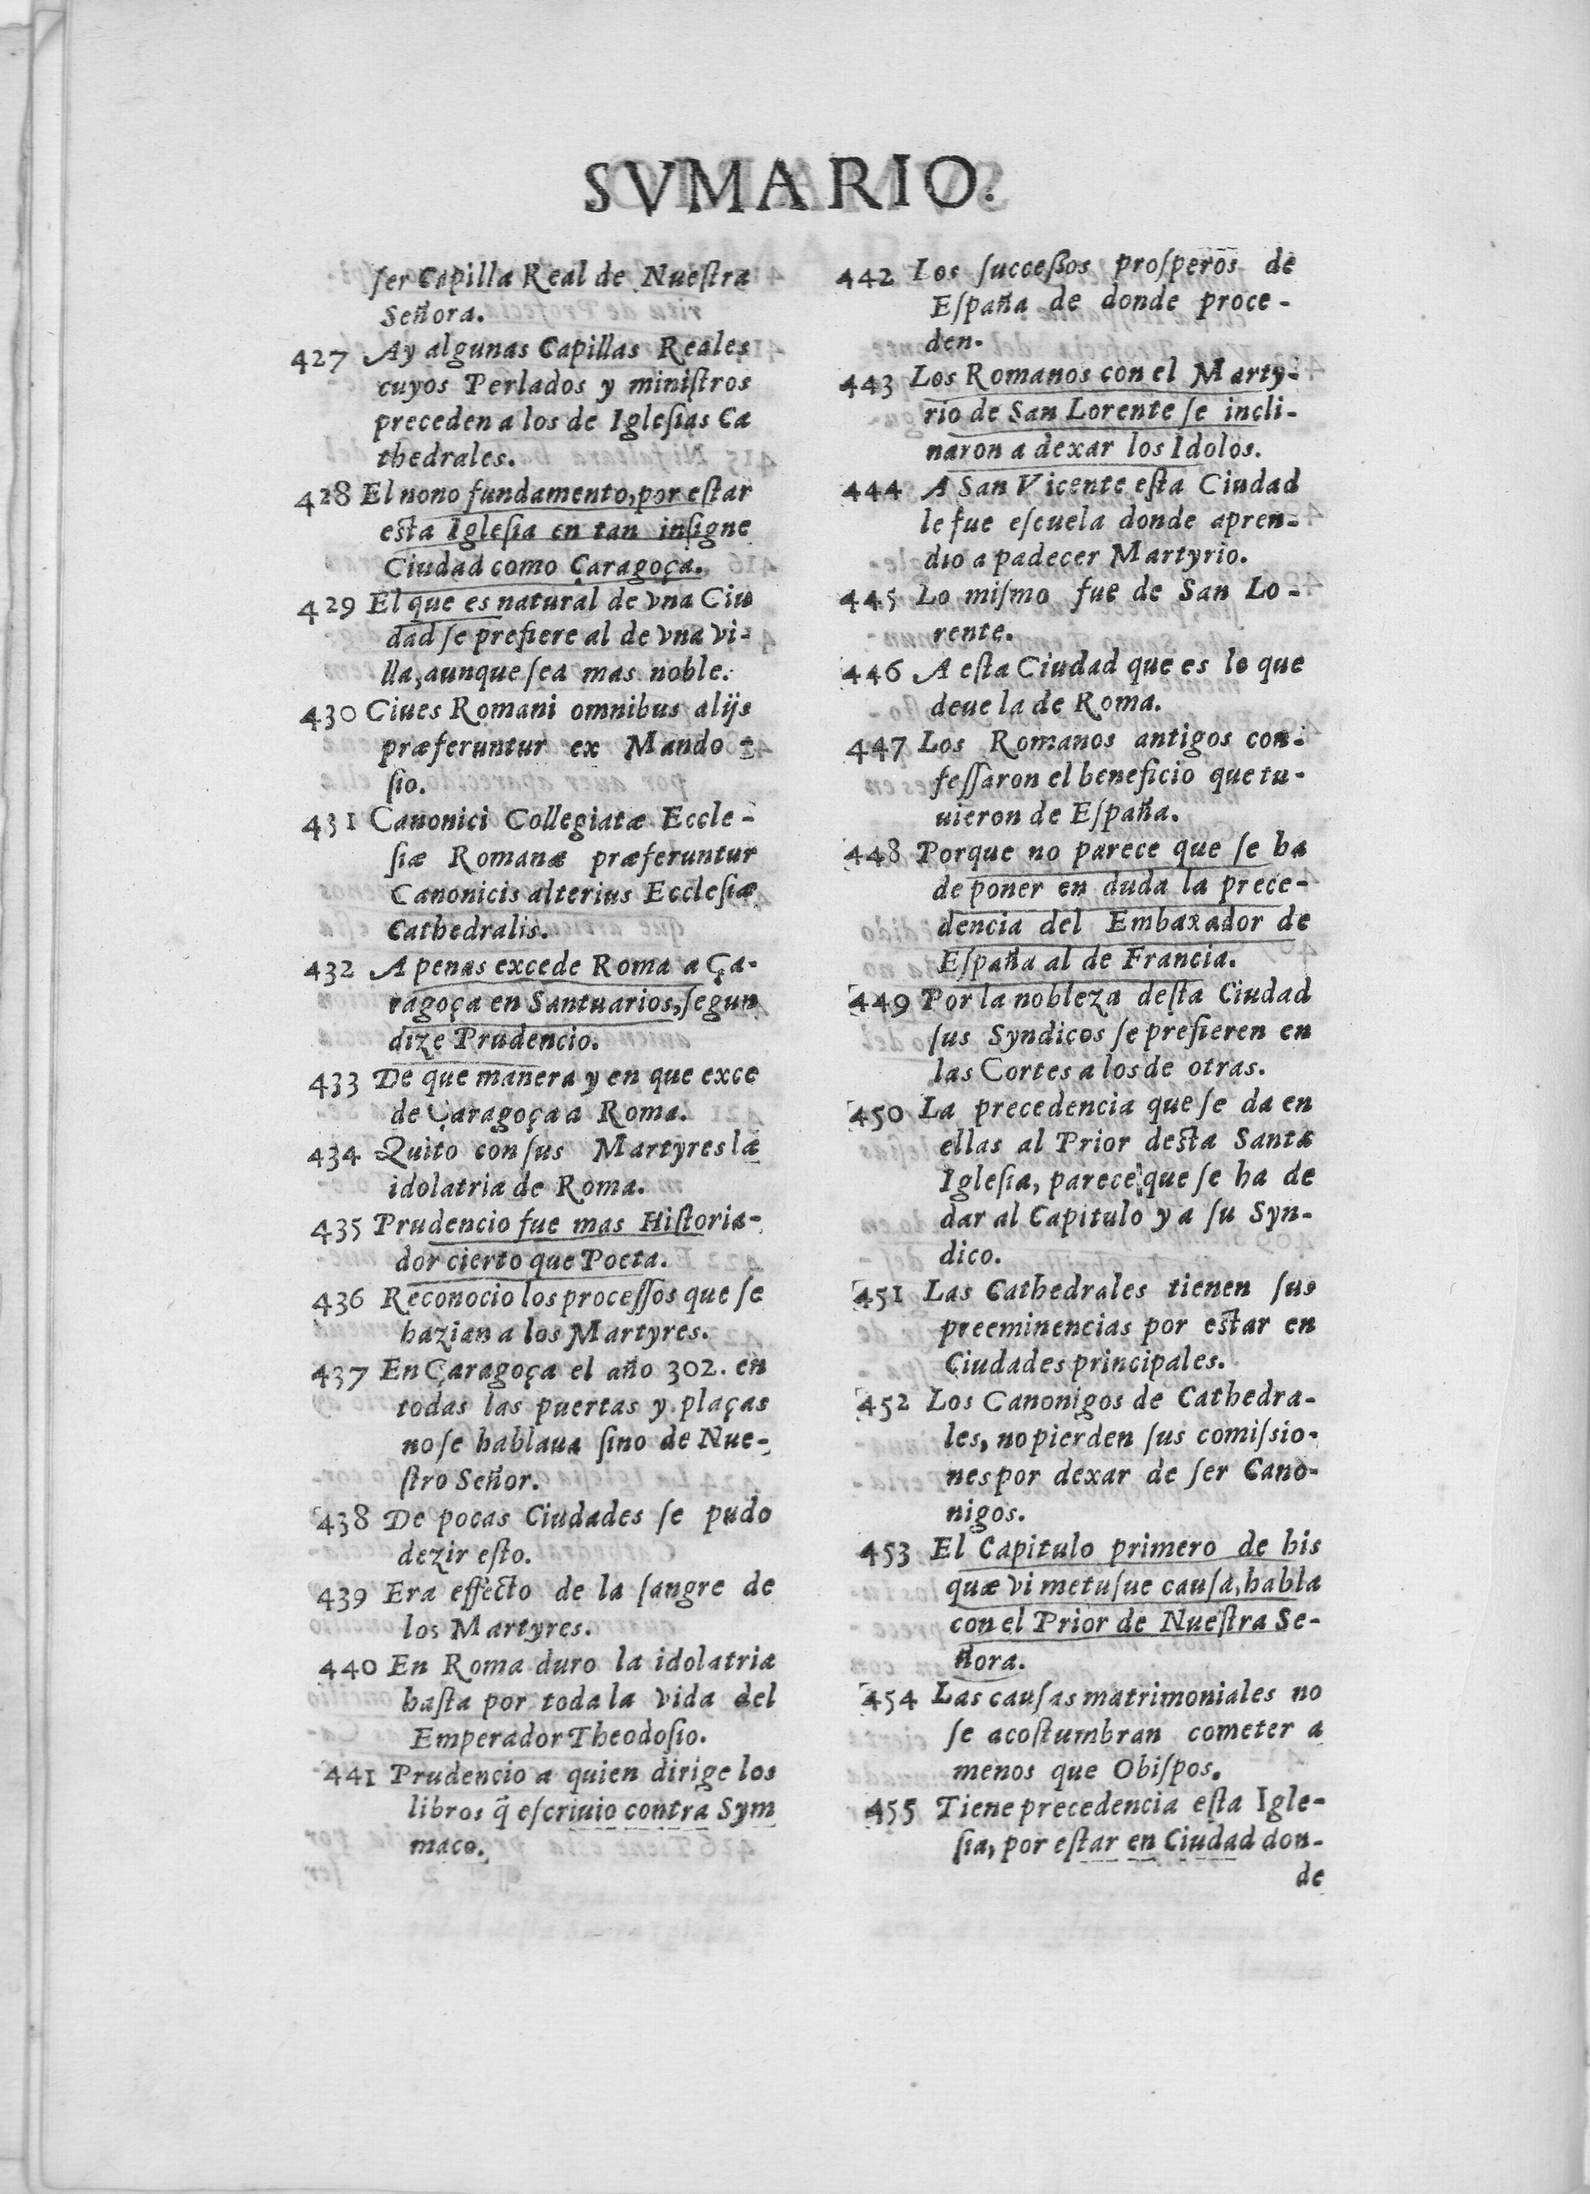 SVMARIO.
ſer Capilla Real de Nueſtra
Señora.
427 Ay algunas Capillas Reales
cuyos Perlados y miniſtros
preceden a los de Igleſias Ca
thedrales.
428 El nono fundamento, por eſtar
eſta Igleſia en tan inſigne
Ciudad como Çaragoça.
429 El que es natural de vna Ciu
dad ſe prefiere al de vna vi-
lla, aunque ſea mas noble.
430 Ciues Romani omnibus alijs
præferuntur ex Mando-
ſio.
431 Canonici Collegiatæ Eccle-
ſiæ Romanæ præferuntur
Canonicis alterius Eccleſiæ
Cathedralis.
432 A penas excede Roma a Ça-
ragoça en Santuarios, ſegun
dize Prudencio.
433 De que manera y en que exce
de Çaragoça a Roma.
434 Quito con ſus Martyres la
idolatria de Roma.
435 Prudencio fue mas Hiſtoria-
dor cierto que Poeta.
436 Reconocio los proceſſos que ſe
hazian a los Martyres.
437 En Çaragoça el año 302. en
todas las puertas y plaças
no ſe hablaua ſino de Nue-
ſtro Señor.
438 De pocas Ciudades ſe pudo
dezir eſto.
439 Era effecto de la ſangre de
los Martyres.
440 En Roma duro la idolatria
haſta por toda la vida del
Emperador Theodoſio.
441 Prudencio a quien dirige los
libros q̃ eſcriuio contra Sym
maco.
442 Los ſucceßos proſperos de
Eſpaña de donde proce-
den.
443 Los Romanos con el Marty-
rio de San Lorente ſe incli-
naron a dexar los Idolos.
444 A San Vicente eſta Ciudad
le fue eſcuela donde apren-
dio a padecer Martyrio.
445 Lo miſmo fue de San Lo-
rente.
446 A eſta Ciudad que es lo que
deue la de Roma.
447 Los Romanos antigos con-
feſſaron el beneficio que tu-
uieron de Eſpaña.
448 Porque no parece que ſe ha
de poner en duda la prece-
dencia del Embaxador de
Eſpaña al de Francia.
449 Por la nobleza deſta Ciudad
ſus Syndicos ſe prefieren en
las Cortes a los de otras.
450 La precedencia que ſe da en
ellas al Prior deſta Santa
Igleſia, parece que ſe ha de
dar al Capitulo y a ſu Syn-
dico.
451 Las Cathedrales tienen ſus
preeminencias por eſtar en
Ciudades principales.
452 Los Canonigos de Cathedra-
les, no pierden ſus comiſsio-
nes por dexar de ſer Cano-
nigos.
453 El Capitulo primero de his
quæ vi metuſue cauſa, habla
con el Prior de Nueſtra Se-
ñora.
454 Las cauſas matrimoniales no
ſe acoſtumbran cometer a
menos que Obiſpos.
455 Tiene precedencia eſta Igle-
ſia, por eſtar en Ciudad don-
de